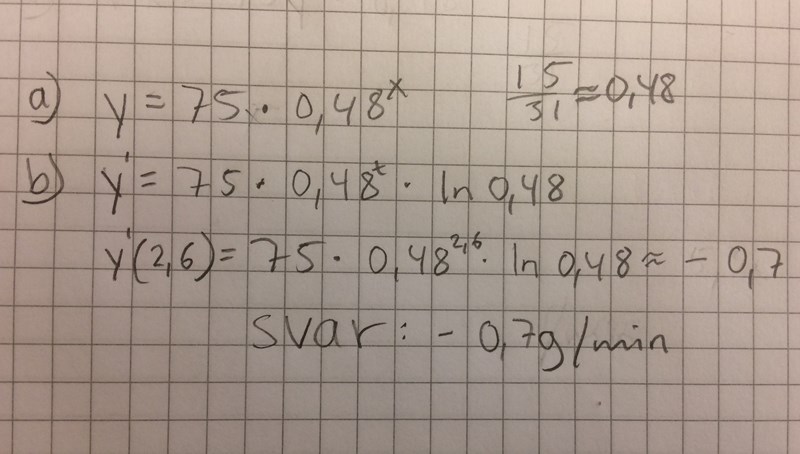 a) y = 75 · 0,48^x   15/31 ≈ 0,48
b) y' = 75 · 0,48^t · ln 0,48
y'(2,6) = 75 · 0,48^2,6 · ln 0,48 ≈ - 0,7
svar: - 0,7g/min